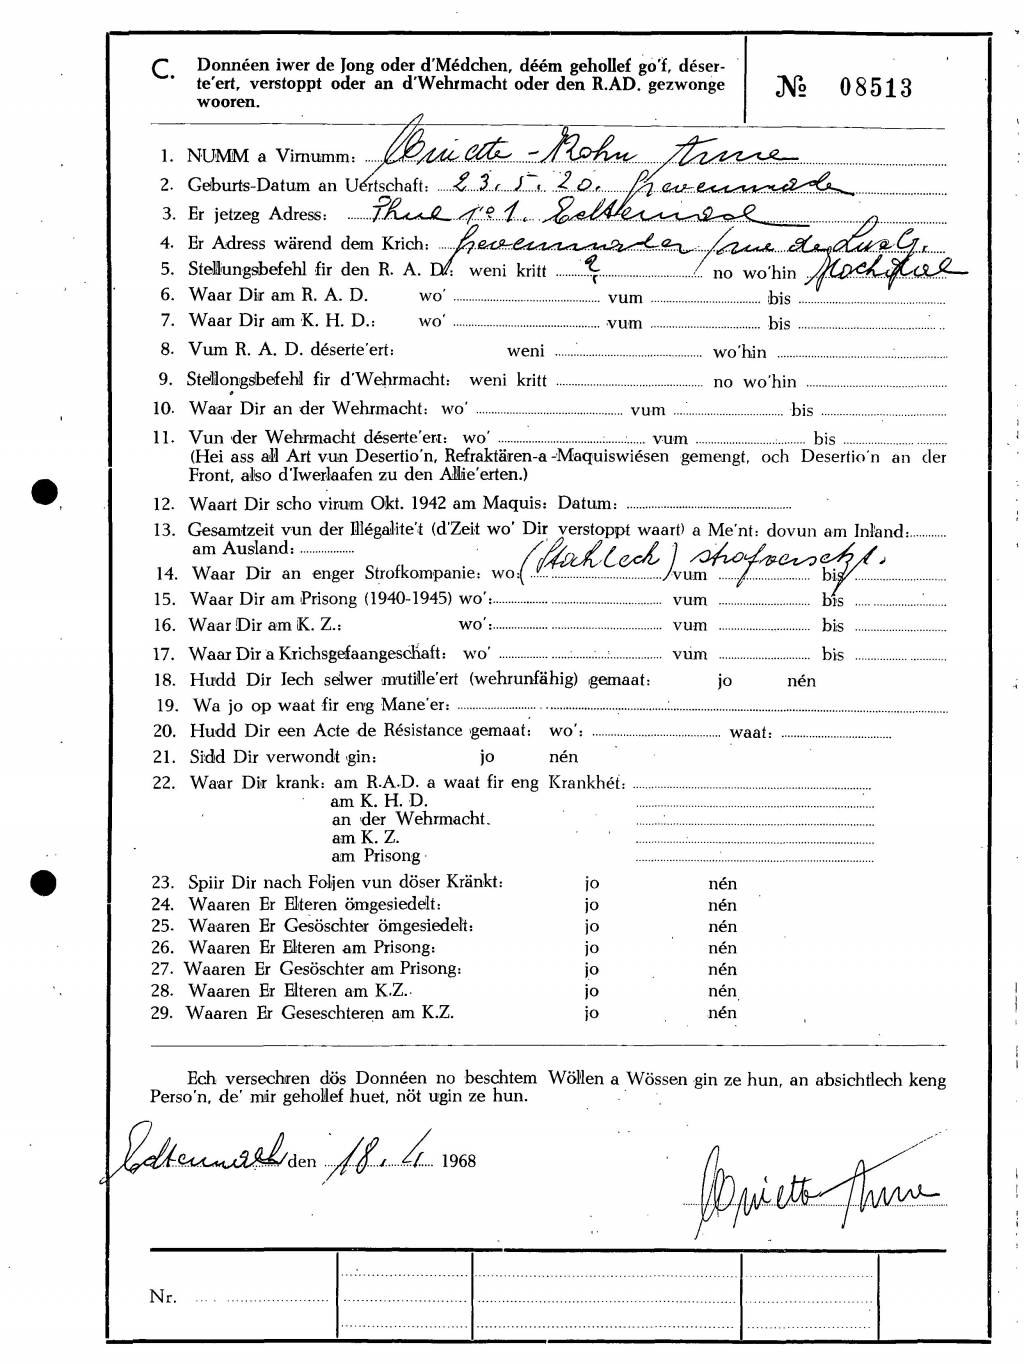 C. Donnéen iwer de Jong oder d'Médchen, déém gehollef go'f, déser-
te'ert, verstoppt oder an d'Wehrmacht oder den R.AD. gezwonge
wooren.
№ 08513
1. NUMM a Virnumm: -Kohn Anne
2. Geburts-Datum an Uertschaft: 23.5.20. Grevenmacher
3. Er jetzeg Adress: No 1. Echternach
4. Er Adress wärend dem Krich: Grevenmacher / rue de Luxbg.
5. Stellungsbefehl fir den R. A. D.: weni kritt ? no wo'hin
6. Waar Dir am R. A. D. wo' vum bis
7. Waar Dir am K. H. D.: wo' vum bis
8. Vum R. A. D. déserte'ert: weni wo'hin
9. Stellongsbefehl fir d'Wehrmacht: weni kritt no wo'hin
10. Waar Dir an der Wehrmacht: wo' vum bis
11. Vun der Wehrmacht déserte'ert: wo' vum bis
(Hei ass all Art vun Desertio'n, Refraktären-a-Maquiswiésen gemengt, och Desertio'n an der
Front, also d'Iwerlaafen zu den Allie'erten.)
12. Waart Dir scho virum Okt. 1942 am Maquis: Datum:
13. Gesamtzeit vun der Illégalite't (d'Zeit wo' Dir verstoppt waart) a Me'nt: dovun am Inland:
am Ausland:
(Stahleck) strafversetzt.
14. Waar Dir an enger Strofkompanie: wo: vum bis
15. Waar Dir am Prisong (1940-1945) wo': vum bis
16. Waar Dir am K. Z.: wo': vum bis
17. Waar Dir a Krichsgefaangeschaft: wo' vum bis
18. Hudd Dir Iech selwer mutille'ert (wehrunfähig) gemaat: jo nén
19. Wa jo op waat fir eng Mane'er:
20. Hudd Dir een Acte de Résistance gemaat: wo': waat:
21. Sidd Dir verwondt gin: jo nén
22. Waar Dir krank: am R.A.D. a waat fir eng Krankhét:
am K. H. D.
an der Wehrmacht.
am K. Z.
am Prisong
23. Spiir Dir nach Foljen vun döser Kränkt: jo nén
24. Waaren Er Elteren ömgesiedelt: jo nén
25. Waaren Er Gesöschter ömgesiedelt: jo nén
26. Waaren Er Elteren am Prisong: jo nén
27. Waaren Er Gesöschter am Prisong: jo nén
28. Waaren Er Elteren am K.Z. jo nén
29. Waaren Er Geseschteren am K.Z. jo nén
Ech versechren dös Donnéen no beschtem Wöllen a Wössen gin ze hun, an absichtlech keng
Perso'n, de' mir gehollef huet, nöt ugin ze hun.
Echternach den 18.4. 1968
Anne
Nr.